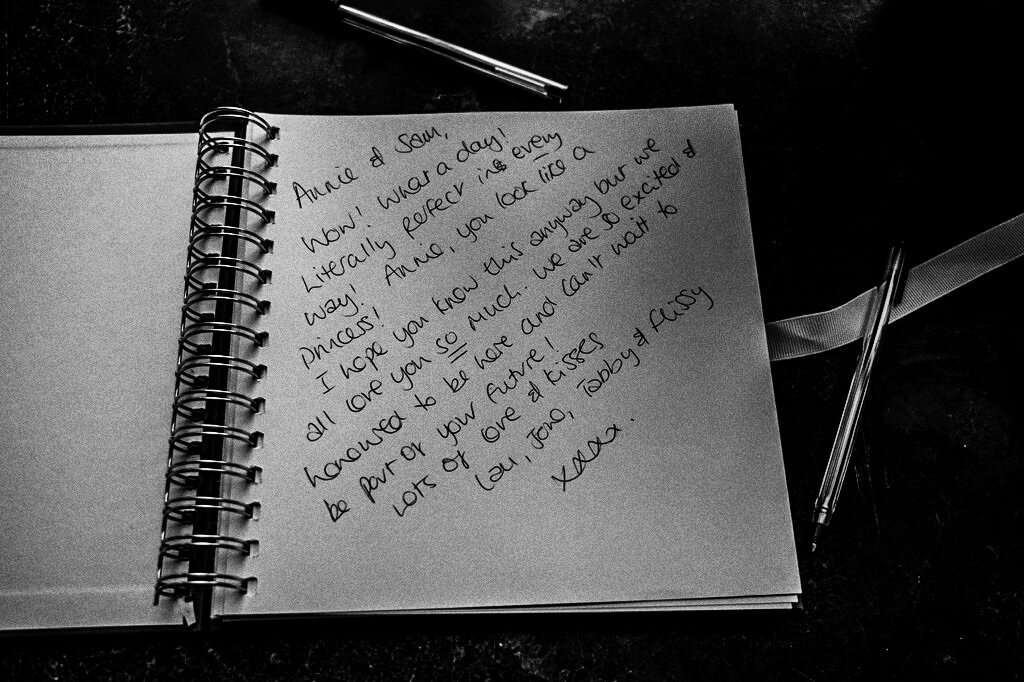 Annie & Sam,
Wow! What a day!
Literally perfect in every
way! Annie, you look like a
princess!
I hope you know this anyway but we
all love you so much. We are so excited &
honoured to be here and can't wait to
be part of your future!
Lots of love & kisses
Lou, Jono, Tabby & Flissy
xxxxx.